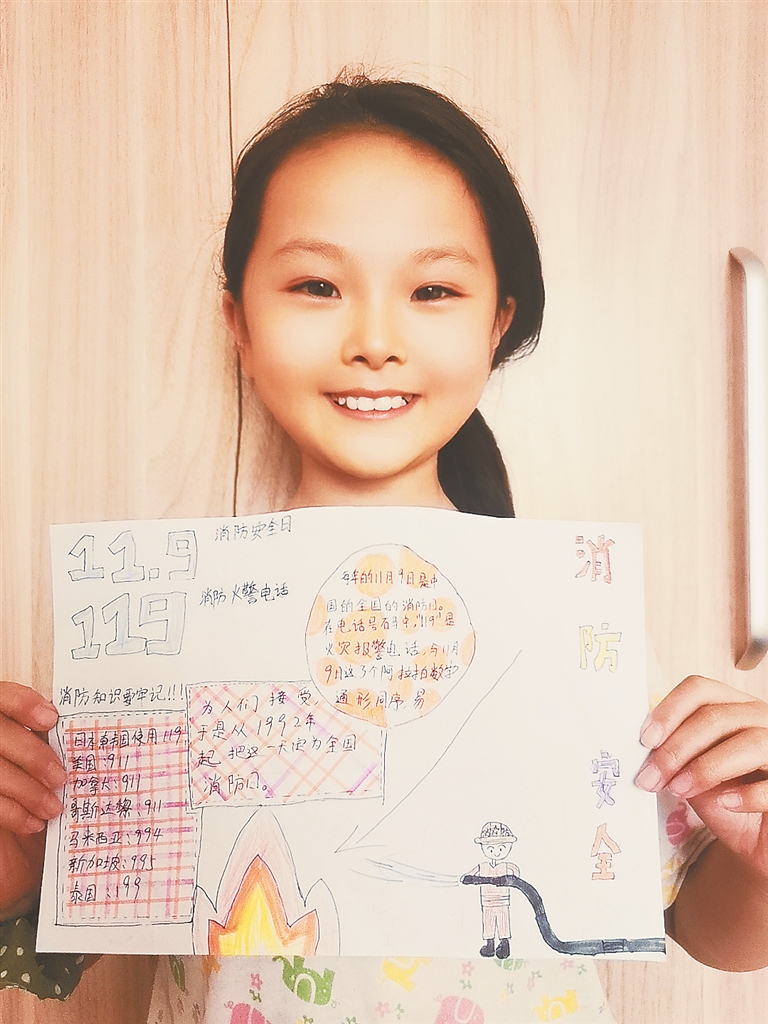 11.9 消防安全日
119 消防火警电话
消防知识要牢记!!!
日本韩国使用119
美国:911
加拿大:911
哥斯达黎:911
马来西亚:994
新加坡:995
泰国:199
每年的11月9日是中
国的全国的消防日。
在电话号码中,"119"是
火灾报警电话,与11月
9日这了个阿拉拍数字
通形同序易
为人们接受,
于是从1992年
起把这一天定为全国
消防日。
消防安全